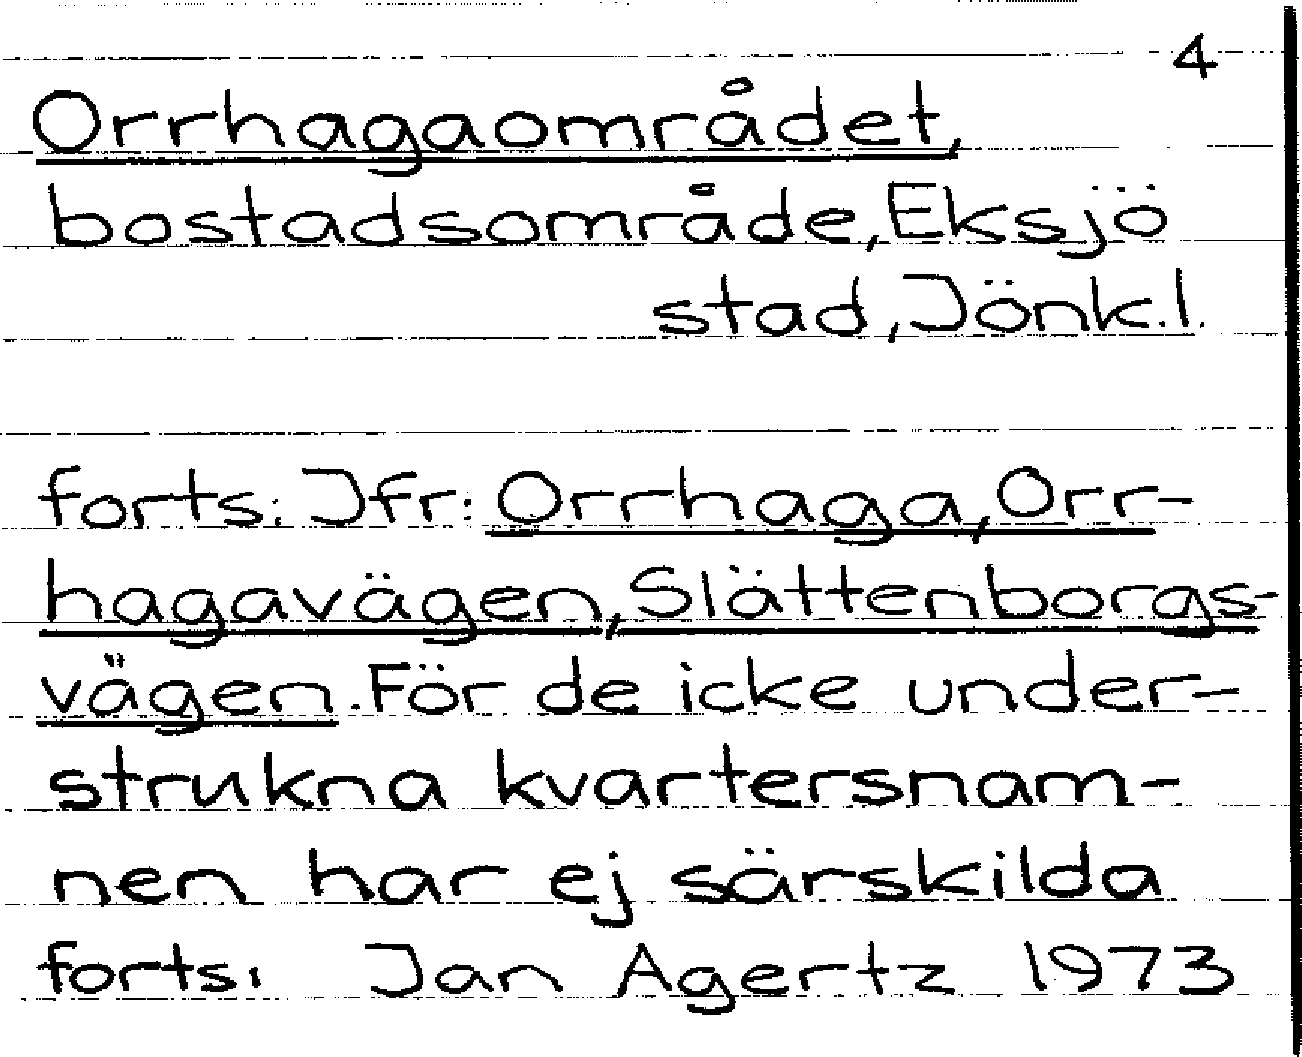 4
Orrhagaområdet,
bostadsområde, Eksjö
stad, Jönk.l.
forts: Jfr: Orrhaga, Orr-
hagavägen, Slättenborgs-
vägen. För de icke under-
strukna kvartersnam-
nen har ej särskilda
forts. Jan Agertz 1973